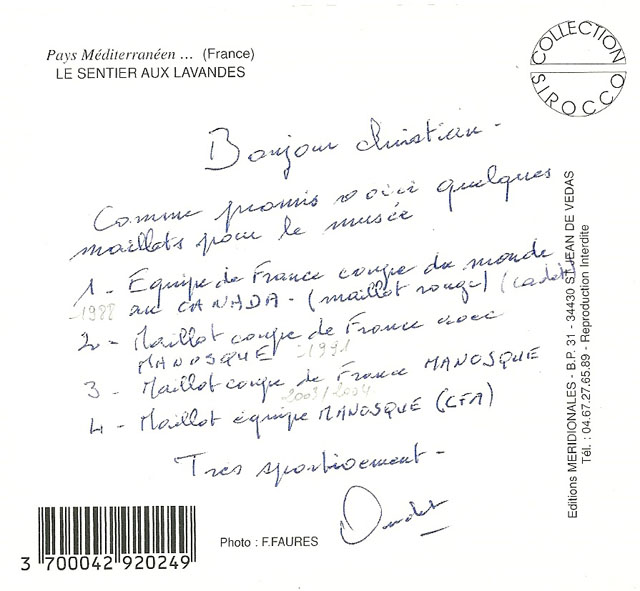 Pays Méditerranéen ... (France)
LE SENTIER AUX LAVANDES
COLLECTION
SIROCCO
Bonjour Christian -
Comme promis voici quelques
maillots pour le musée
1 - Equipe de France coupe du monde
1988 au CANADA - (maillot rouge) (cadet)
2 - Maillot coupe de France avec
MANOSQUE - 1991
3 - Maillot coupe de France MANOSQUE
2003/2004
4 - Maillot équipe MANOSQUE (CFA)
Très sportivement -
Photo : F.FAURES
3 700042 920249
Editions MERIDIONALES - B.P. 31 - 34430 ST JEAN DE VEDAS
Tél. : 04.67.27.65.89 - Reproduction Interdite